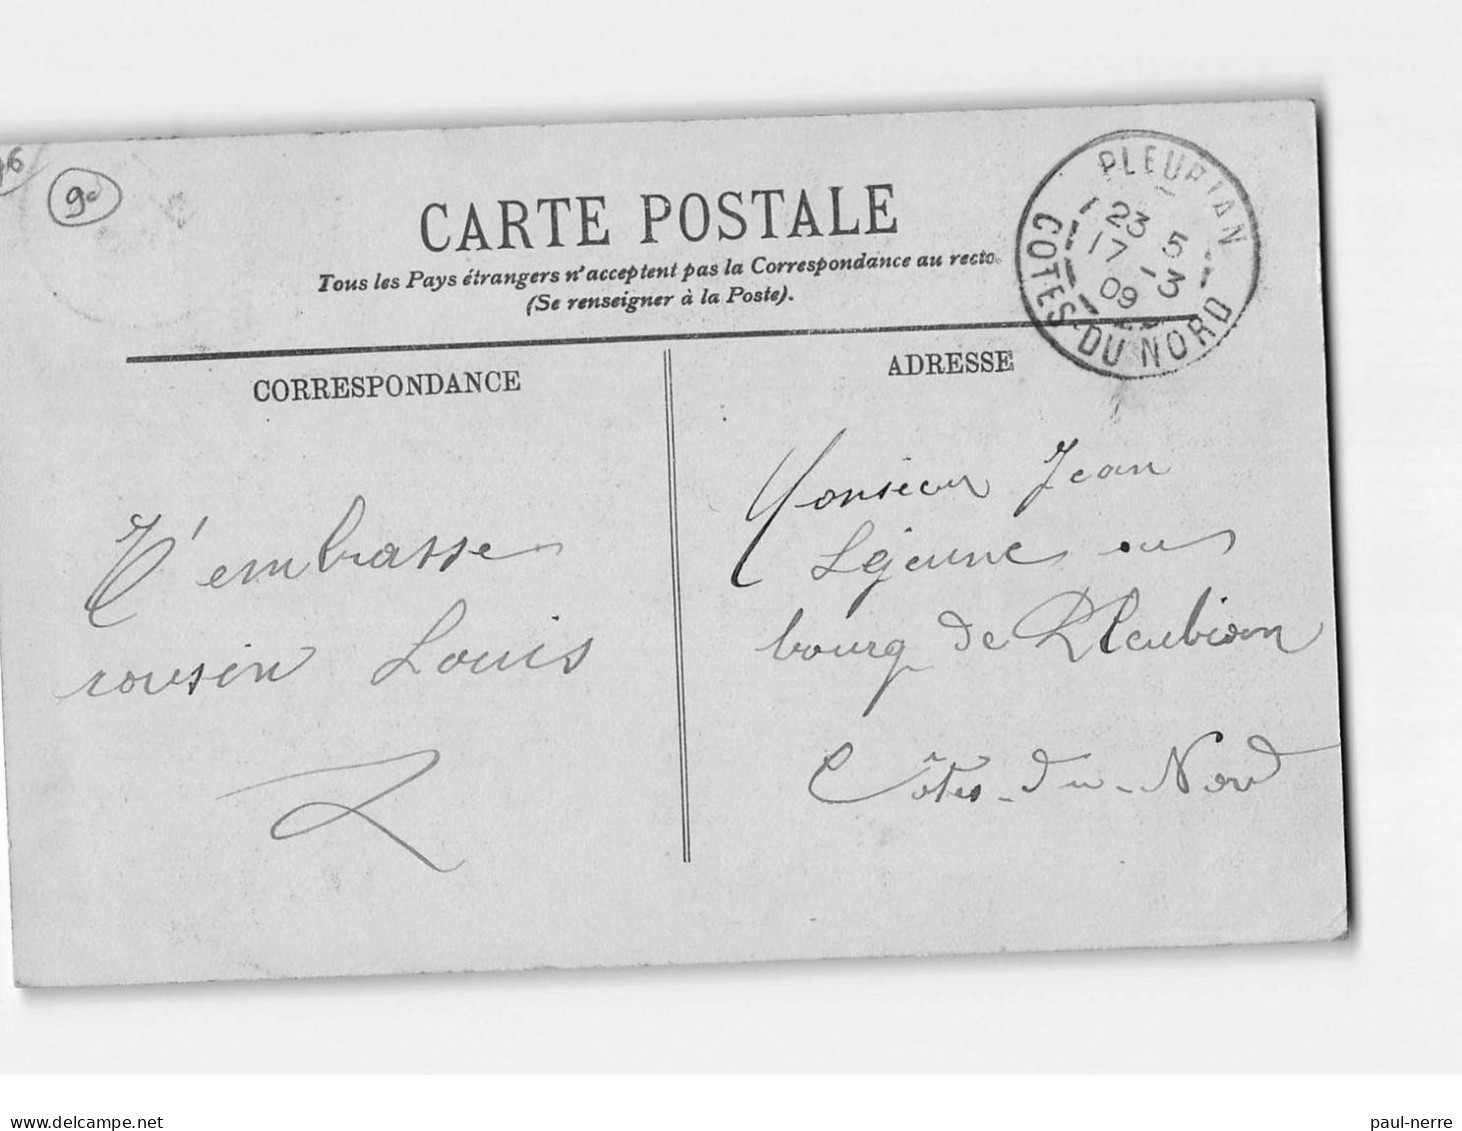 90
CARTE POSTALE
Tous les Pays étrangers n'acceptent pas la Correspondance au recto.
(Se renseigner à la Poste).
PLEUBIAN
23 5
17 -3
09
COTES-DU-NORD
CORRESPONDANCE
ADRESSE
T'embrasse
cousin Louis
L
Monsieur Jean
Lejeune au
bourg de Pleubian
Côtes-du-Nord
www.delcampe.net
paul-nerre